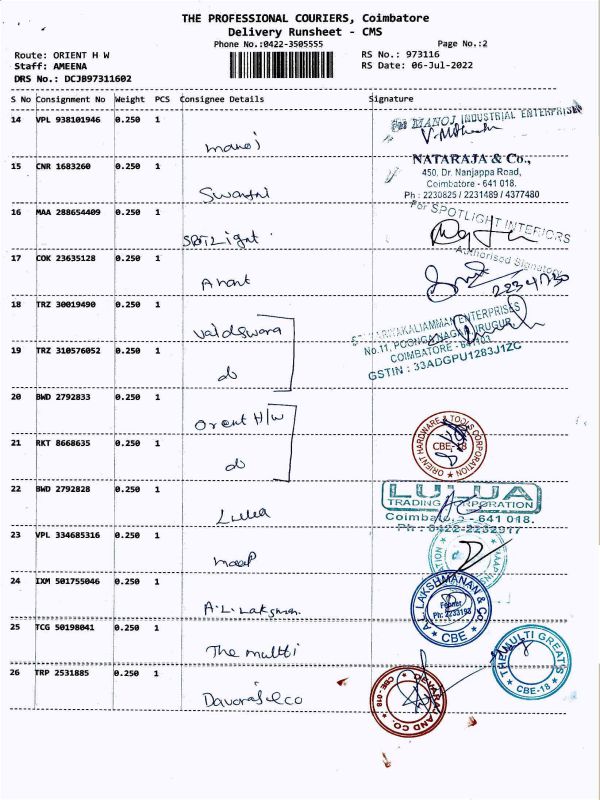 THE PROFESSIONAL COURIERS, Coimbatore
Delivery Runsheet - CMS
Phone No.:0422-3505555
Page No.:2
Route: ORIENT H W
RS No.: 973116
Staff: AMEENA
RS Date: 06-Jul-2022
DRS No.: DCJB97311602
S No Consignment No Weight PCS Consignee Details Signature
14 VPL 938101946 0.250 1
manoj
MANOJ INDUSTRIAL ENTERPRISES
15 CNR 1683260 0.250 1
NATARAJA & Co.,
450, Dr. Nanjappa Road,
Coimbatore - 641 018.
Ph : 2230825 / 2231489 / 4377480
16 MAA 288654409 0.250 1
Spotlight
For SPOTLIGHT INTERIORS
Authorised Signatory
17 COK 23635128 0.250 1
Anant
18 TRZ 30019490 0.250 1
19 TRZ 310576052 0.250 1
do
ENTERPRISES
No.11, POONGANAGAR, IRUGUR
COIMBATORE - 641103
GSTIN : 33ADGPU1283J1ZC
20 BWD 2792833 0.250 1
Orent H/w
21 RKT 8668635 0.250 1
do
ORIENT HARDWARE & TOOLS CORPORATION
CBE-18
22 BWD 2792828 0.250 1
Lulua
LULUA
TRADING CORPORATION
Coimbatore - 641 018.
Ph : 0422-2232917
23 VPL 334685316 0.250 1
24 IXM 501755046 0.250 1
A.L. Lakshman
A.L. LAKSHMANAN & Co.
Ph: 2233193
CBE
25 TCG 50198041 0.250 1
The multti
THE MULTI GREATS
CBE-18
26 TRP 2531885 0.250 1
CBE-018
AND CO.